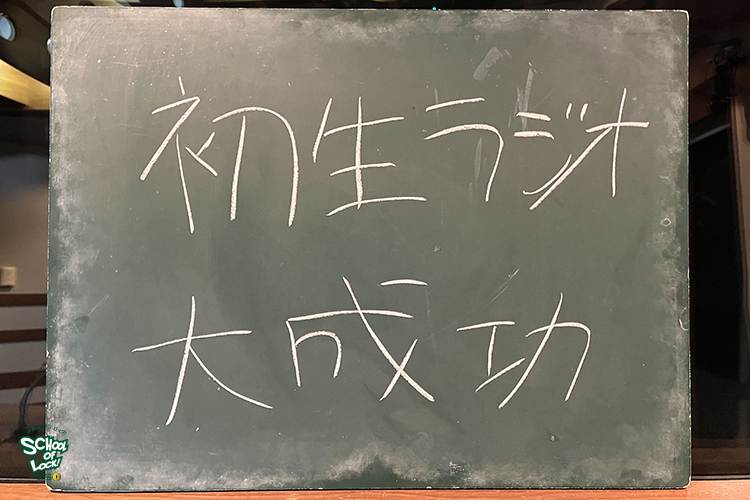 初生ラジオ
大成功
SCHOOL
OF
LOCK!